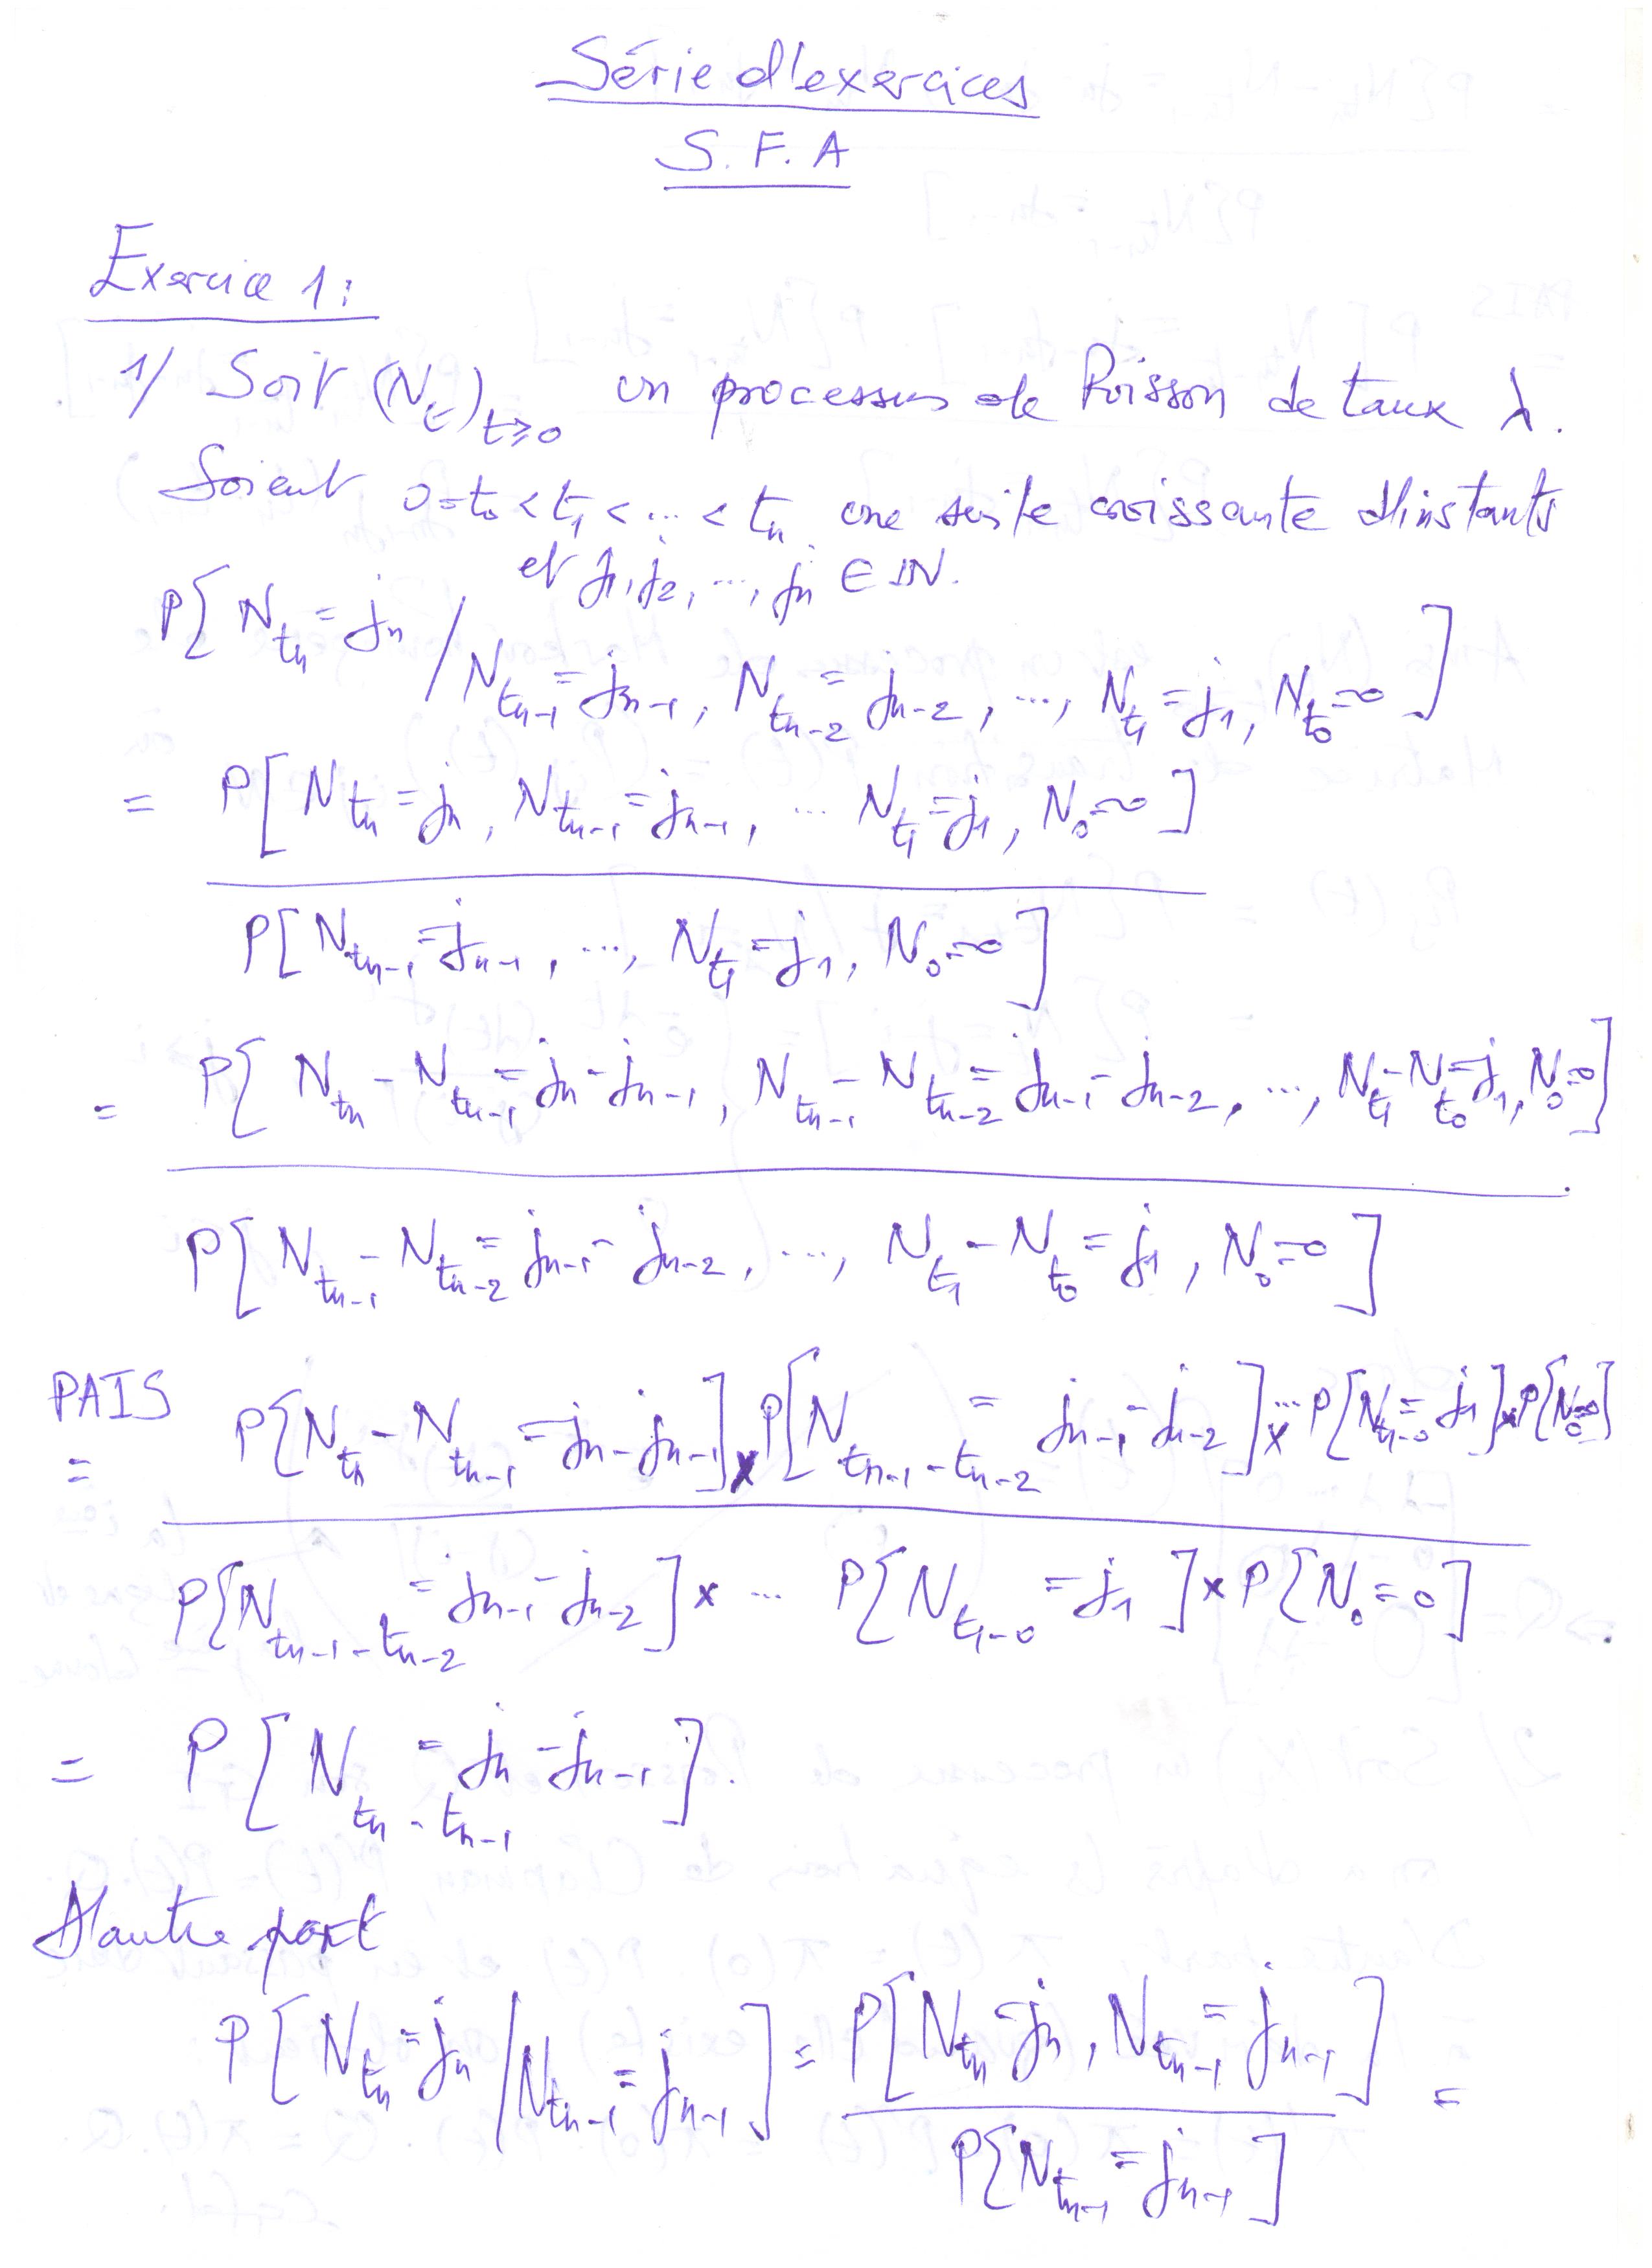 Série d'exercices
S. F. A
Exercice 1:
1/ Soit (N_t)_{t≥0} un processus de Poisson de taux λ.
Soient 0=t_0 < t_1 < ... < t_n une suite croissante d'instants
et j_1, j_2, ..., j_n ∈ IN.
P[N_{t_n} = j_n / N_{t_{n-1}} = j_{n-1}, N_{t_{n-2}} = j_{n-2}, ..., N_{t_1} = j_1, N_{t_0} = 0]
= P[N_{t_n} = j_n, N_{t_{n-1}} = j_{n-1}, ... N_{t_1} = j_1, N_0 = 0]
P[N_{t_{n-1}} = j_{n-1}, ..., N_{t_1} = j_1, N_0 = 0]
= P[N_{t_n} - N_{t_{n-1}} = j_n - j_{n-1}, N_{t_{n-1}} - N_{t_{n-2}} = j_{n-1} - j_{n-2}, ..., N_{t_1} - N_{t_0} = j_1, N_0 = 0]
P[N_{t_{n-1}} - N_{t_{n-2}} = j_{n-1} - j_{n-2}, ..., N_{t_1} - N_{t_0} = j_1, N_0 = 0]
PAIS
= P[N_{t_n} - N_{t_{n-1}} = j_n - j_{n-1}] × P[N_{t_{n-1} - t_{n-2}} = j_{n-1} - j_{n-2}] × ... P[N_{t_1 - 0} = j_1] × P[N_0 = 0]
P[N_{t_{n-1} - t_{n-2}} = j_{n-1} - j_{n-2}] × ... P[N_{t_1 - 0} = j_1] × P[N_0 = 0]
= P[N_{t_n - t_{n-1}} = j_n - j_{n-1}].
D'autre part
P[N_{t_n} = j_n / N_{t_{n-1}} = j_{n-1}] = P[N_{t_n} = j_n, N_{t_{n-1}} = j_{n-1}] =
P[N_{t_{n-1}} = j_{n-1}]